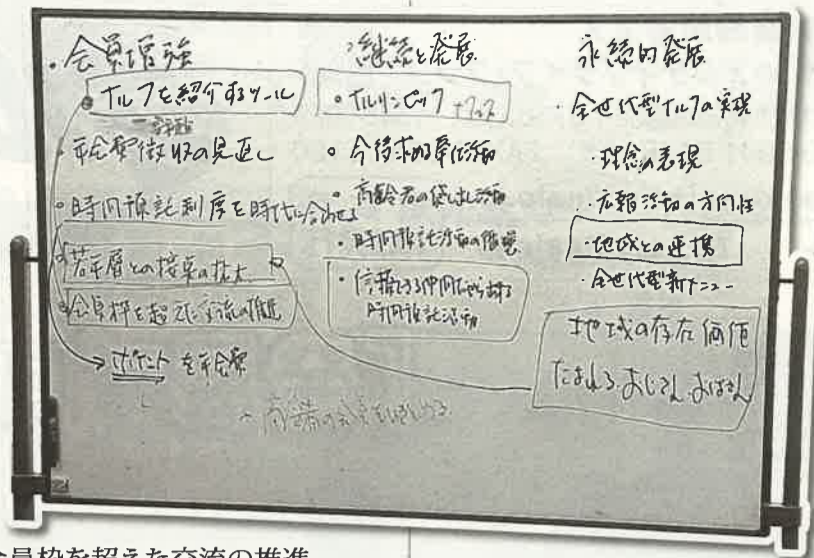 ・会員増強
・ナルフを紹介するツール
・年会費徴収の見直し
・時間預託制度を時代に合わせる
・若年層との接点の拡大
・会員枠を超えた交流の推進
→ポイントを年会費
・継続と発展
・ナルリンピック
・今後求める奉仕活動
・高齢者の貸し出し活動
・時間預託活動の
・信頼できる仲間だから出来る
時間預託活動
永続的発展
・全世代型ナルフの実現
・理念の表現
・広報活動の方向性
・地域との連携
・全世代型新メニュー
地域の存在価値
たよれるおじさんおばさん
会員枠を超えた交流の推進